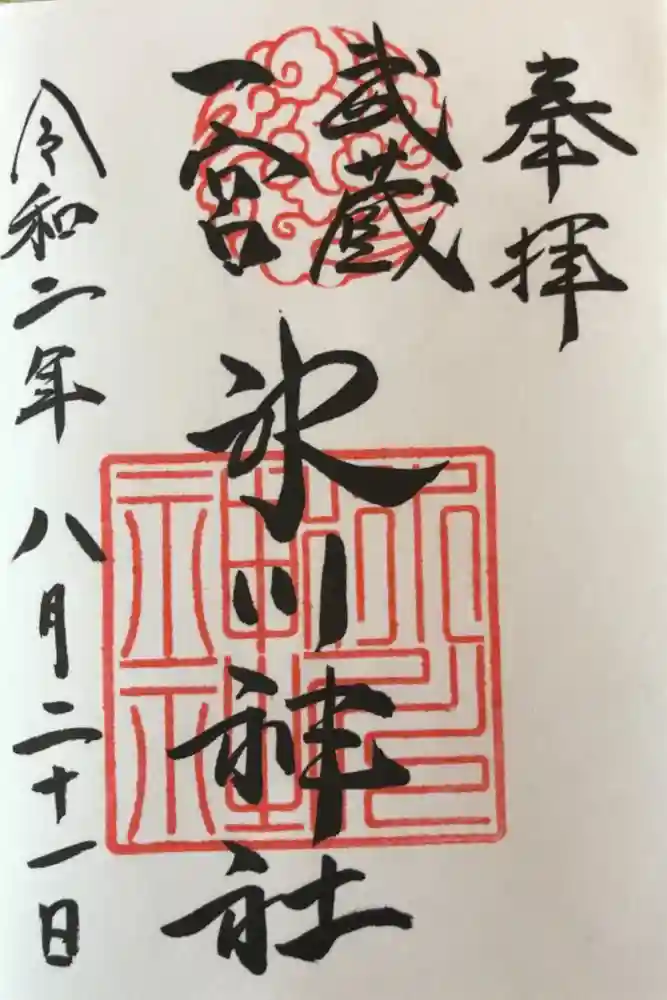 奉拝
武蔵
一宮
氷川神社
令和二年八月二十一日